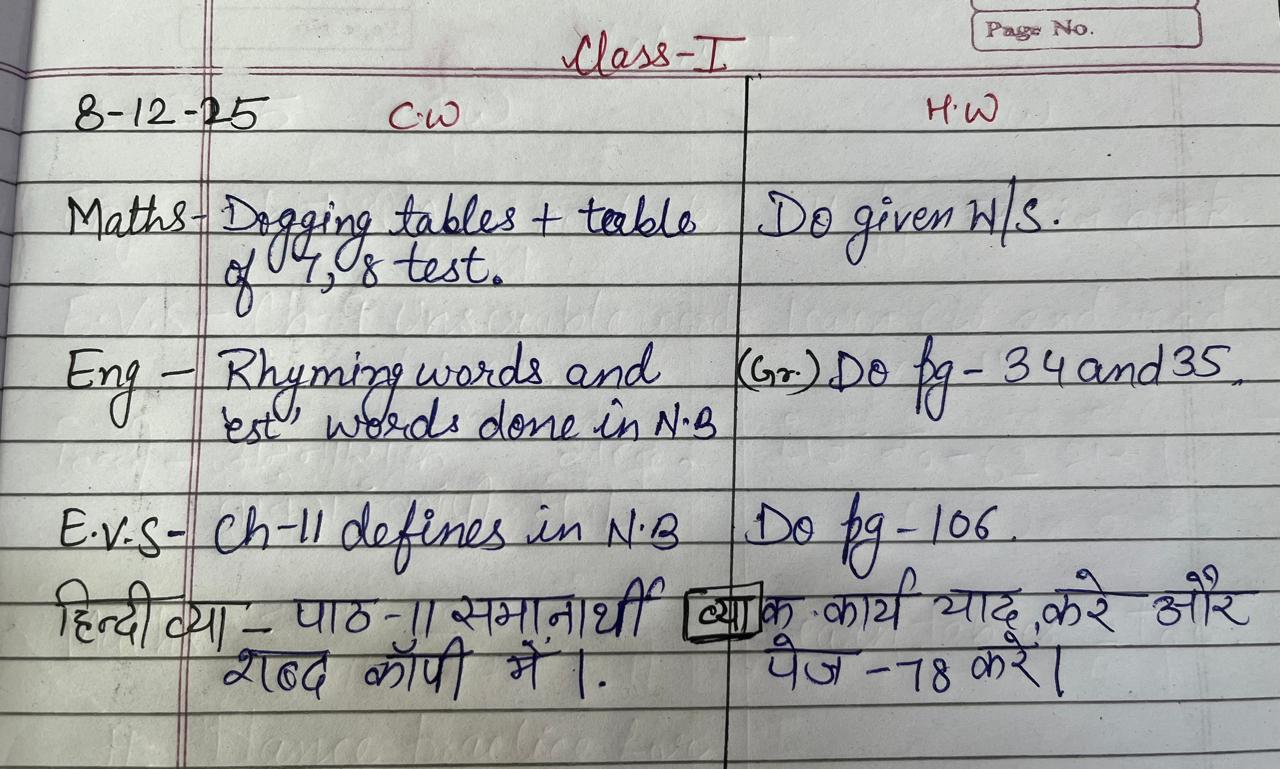 Page No.
Class-I
8-12-25 C.W H.W
Maths- Dogging tables + table Do given W/S.
of 7, 8 test.
Eng - Rhyming words and (Gr.) Do pg - 34 and 35.
'est' words done in N.B
E.V.S- Ch-11 defines in N.B Do pg - 106.
हिन्दी व्या - पाठ -11 समानार्थी व्या क. कार्य याद करे और
शब्द कॉपी में । पेज - 78 करें।